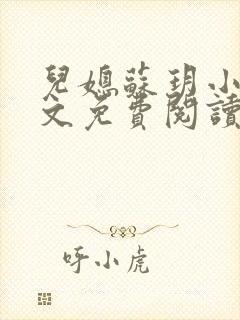 兒媳蘇玥小
文免費閱讀
呼小虎